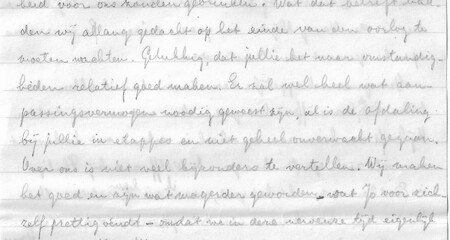 heid voor ons zouden gevonden. Wat dat betreft had-
den wij allang gedacht op het einde van een oorlog te
moeten wachten. Gelukkig, dat jullie het naar omstandig-
heden relatief goed maken. Er zal wel heel wat aan
passingsvermogen noodig geweest zijn, al is de afdaling
bij jullie in etappes en niet geheel onverwacht gegaan.
Over ons is niet veel bijzonders te vertellen. Wij maken
het goed en zijn wat magerder geworden – wat Jo voor zich
zelf prettig vindt – omdat we in deze nerveuze tijd eigenlijk